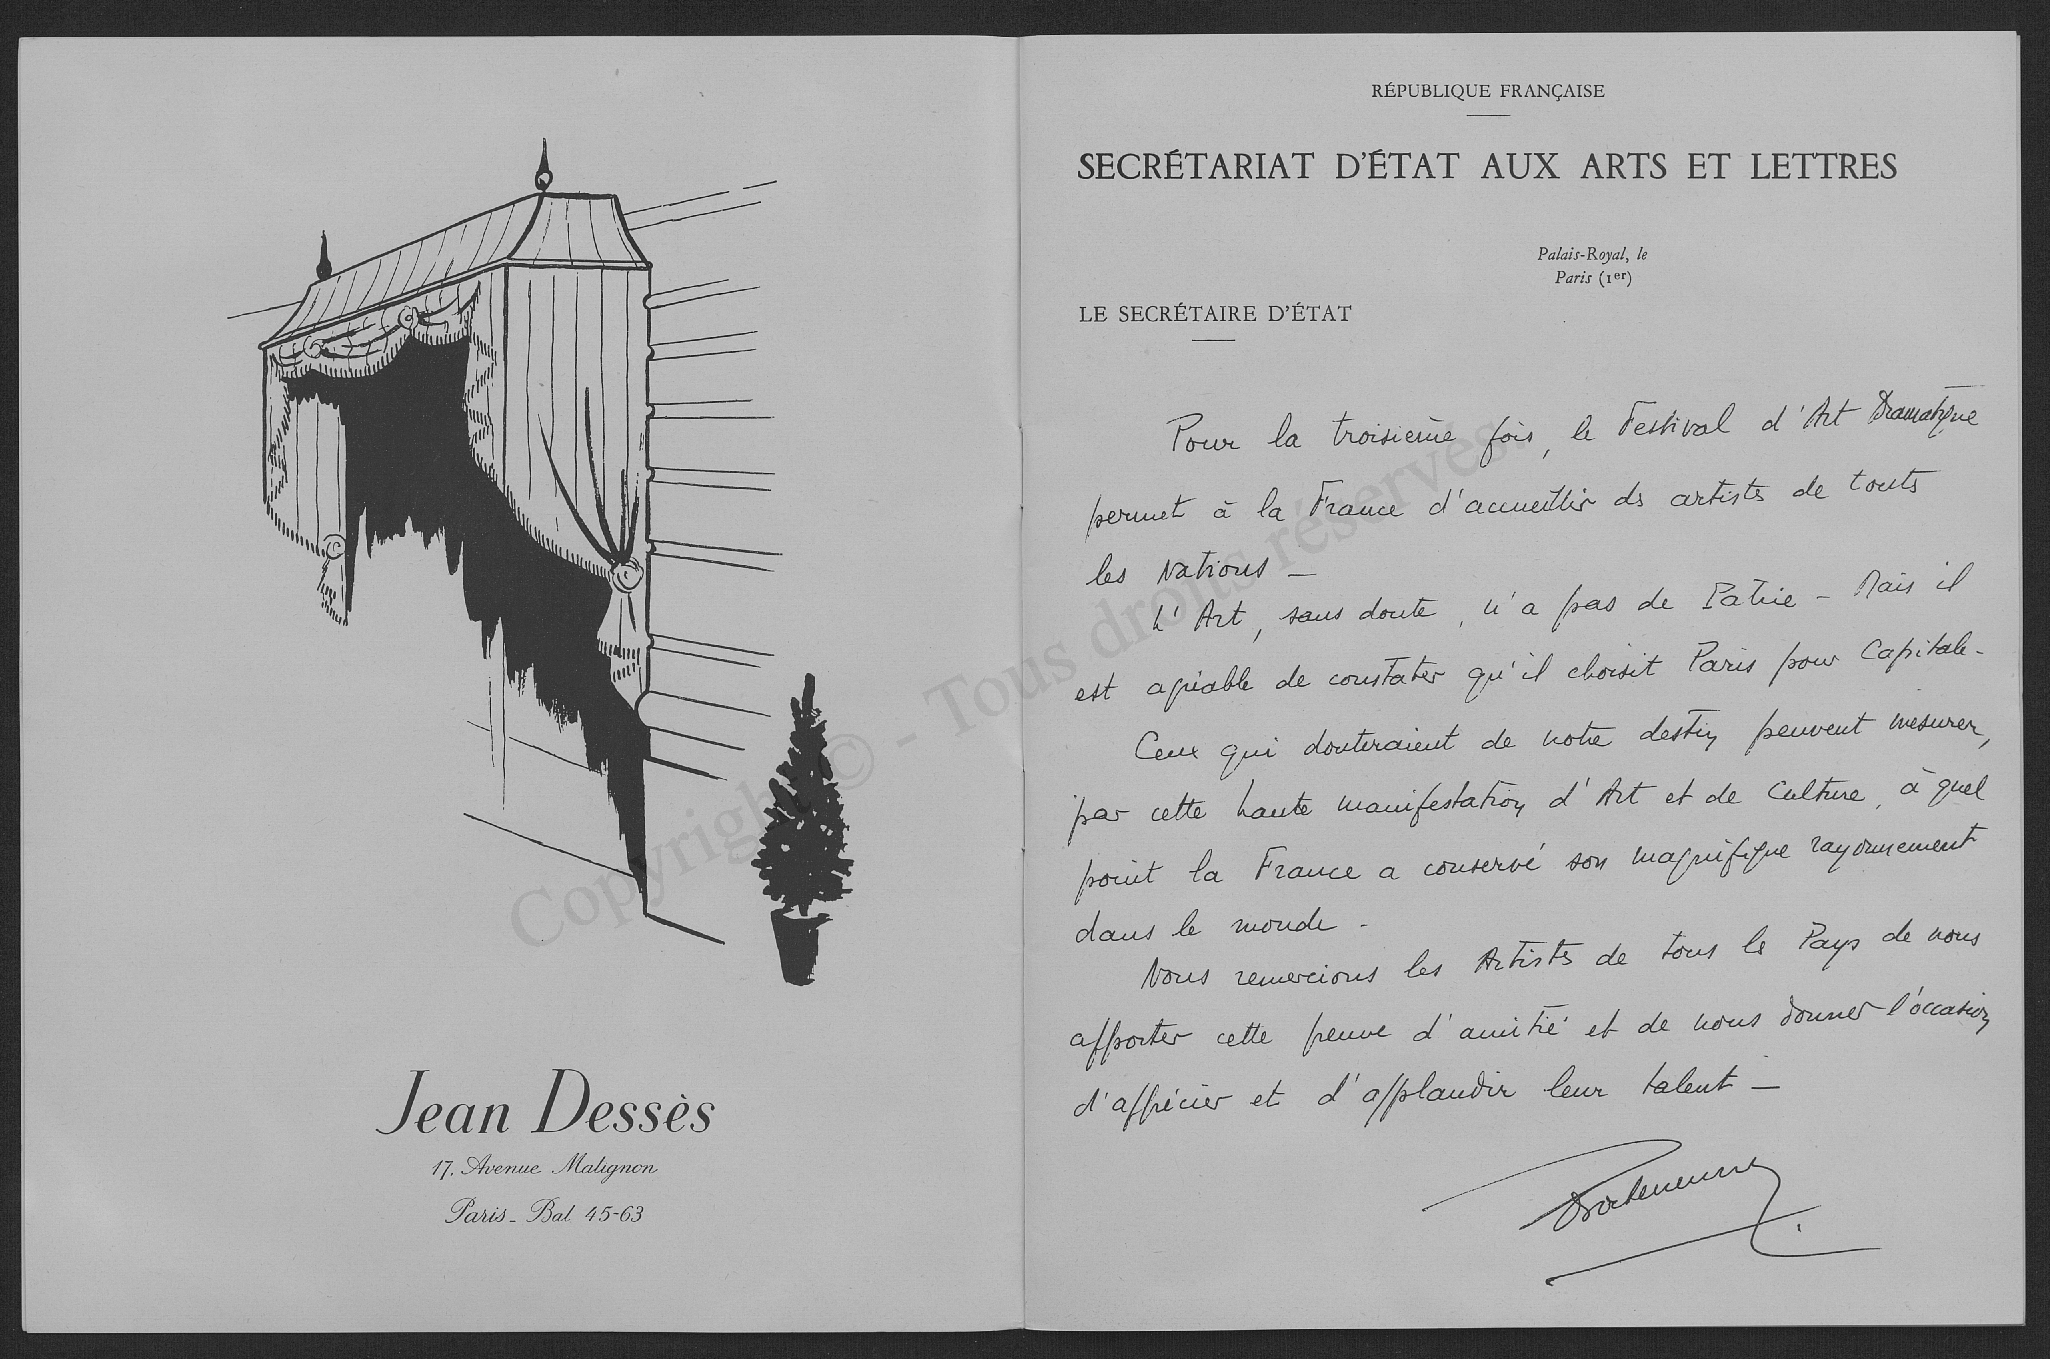 Jean Dessès
17, Avenue Matignon
Paris - Bal 45-63
RÉPUBLIQUE FRANÇAISE
SECRÉTARIAT D'ÉTAT AUX ARTS ET LETTRES
Palais-Royal, le
Paris (1er)
LE SECRÉTAIRE D'ÉTAT
Pour la troisième fois, le Festival d'Art Dramatique
permet à la France d'accueillir des artistes de toutes
les Nations —
L'Art, sans doute, n'a pas de Patrie — Mais il
est agréable de constater qu'il choisit Paris pour Capitale -
Ceux qui douteraient de notre destin peuvent mesurer,
par cette haute manifestation d'Art et de Culture, à quel
point la France a conservé son magnifique rayonnement
dans le monde -
Nous remercions les Artistes de tous les Pays de nous
apporter cette preuve d'amitié et de nous donner l'occasion
d'apprécier et d'applaudir leur talent —
Copyright © - Tous droits réservés.